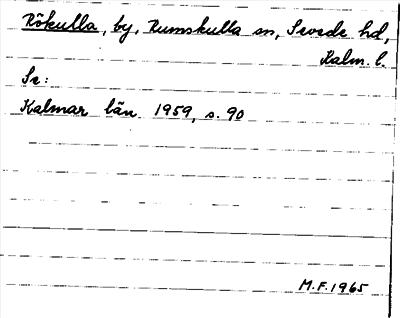 Rökulla, by, Rumskulla sn, Sevede hd,
Kalm. l.
Se:
Kalmar län 1959, s. 90
M.F. 1965